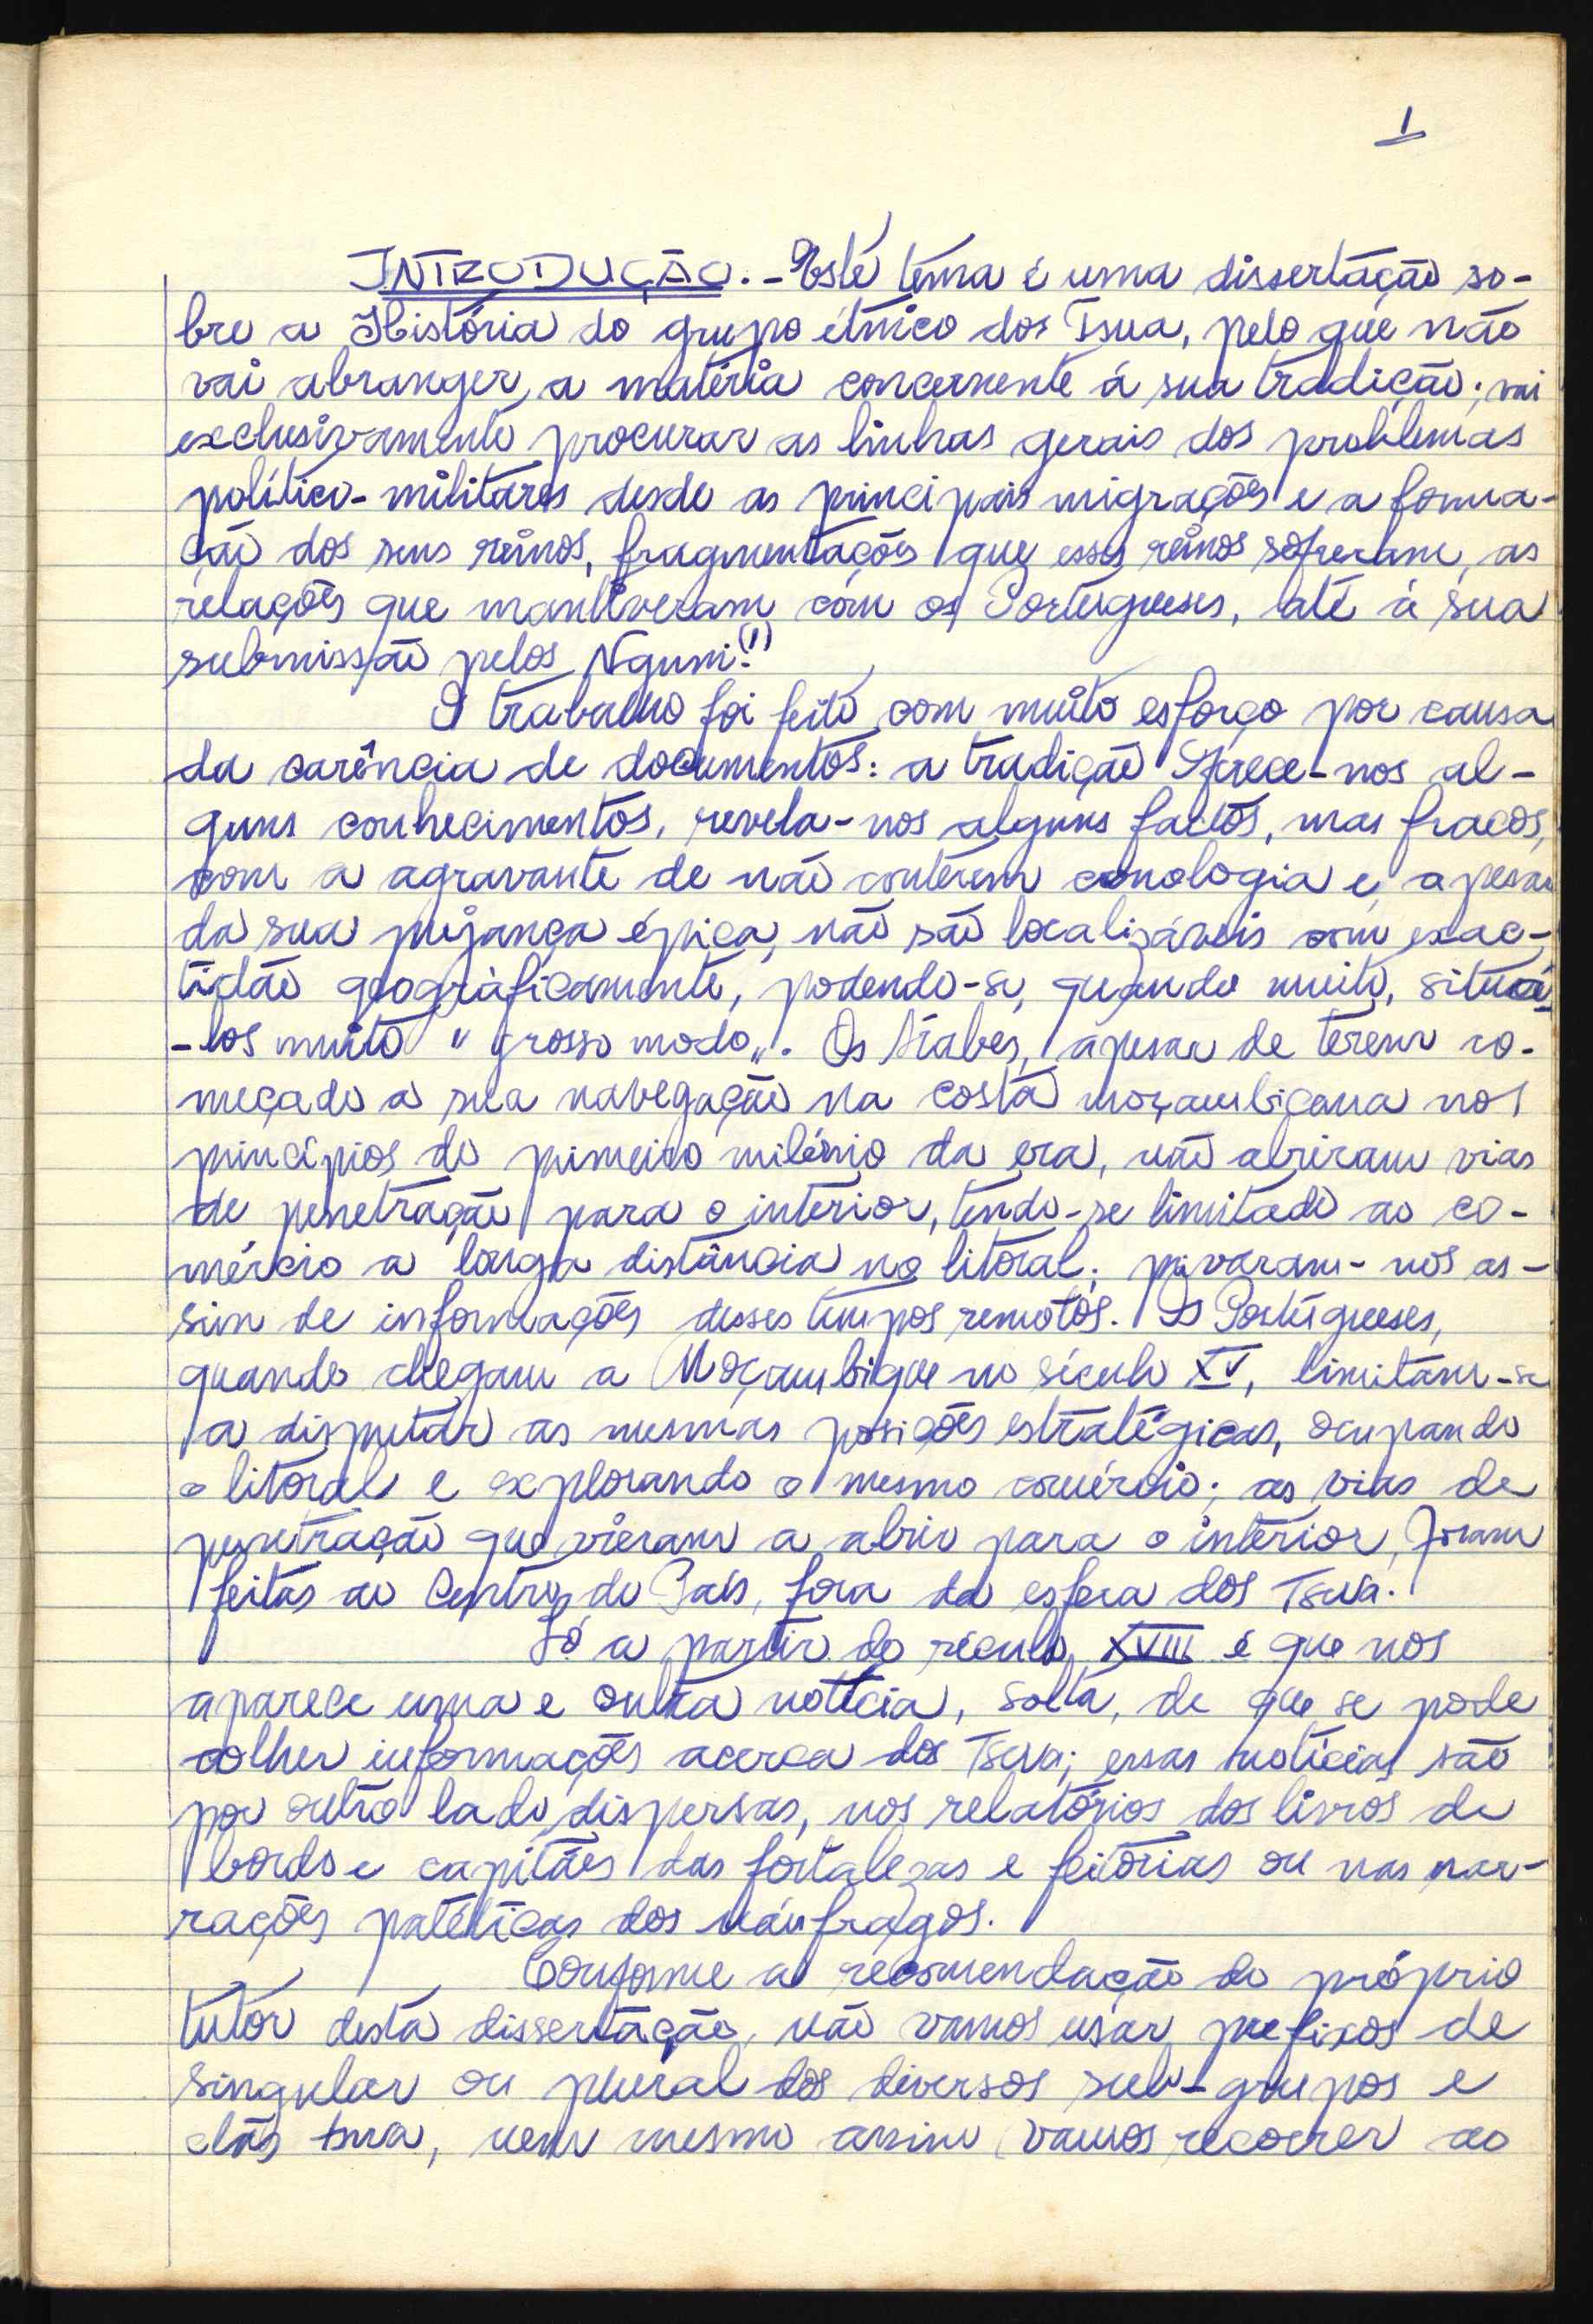 1
INTRODUÇÃO. - Este tema é uma dissertação so-
bre a História do grupo étnico dos Tsua, pelo que não
vai abranger a matéria concernente á sua tradição; vai
exclusivamente procurar as linhas gerais dos problemas
político-militares desde as principais migrações e a forma-
ção dos seus reinos, fragmentações que esses reinos sofreram, as
relações que mantiveram com os Portugueses, até à sua
submissão pelos Nguni.(1)
O trabalho foi feito com muito esforço por causa
da carência de documentos: a tradição oferece-nos al-
guns conhecimentos, revela-nos alguns factos, mas fracos,
com a agravante de não conterem cronologia e, apesar
da sua pujança épica, não são localizáveis com exac-
tidão geogràficamente, podendo-se, quando muito, situá-
-los muito "grosso modo". Os Árabes, apesar de terem co-
meçado a sua navegação na costa moçambicana nos
princípios do primeiro milénio da era, não abriram vias
de penetração para o interior, tendo-se limitado ao co-
mércio a longa distância no litoral; privaram-nos as-
sim de informações desses tempos remotos. Os Portugueses,
quando chegam a Moçambique no século XV, limitam-se
a disputar as mesmas posições estratégicas, ocupando
o litoral e explorando o mesmo comércio; as vias de
penetração que vieram a abrir para o interior, foram
feitas ao Centro do País, fora da esfera dos Tsua.
Só a partir do século XVIII é que nos
aparece uma e outra notícia, solta, de que se pode
colher informações acerca dos Tsua; essas notícias são
por outro lado dispersas, nos relatórios dos livros de
bordo e capitães das fortalezas e feitorias ou nas nar-
rações patéticas dos náufragos.
Conforme a recomendação do próprio
tutor desta dissertação, não vamos usar prefixos de
singular ou plural dos diversos sub-grupos e
clãs tsua, nem mesmo assim vamos recorrer ao